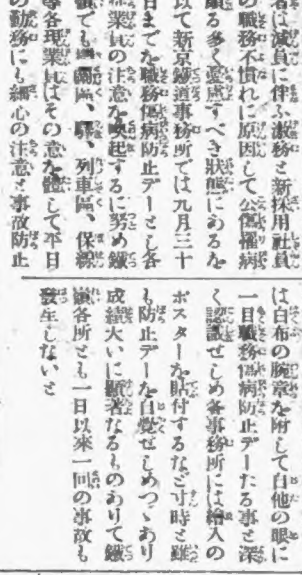 者は減員に伴ふ激務と新採用社員
の職務不慣れに原因して公傷罹病
頗る多く憂慮すべき狀態にあるを
以て新京鐵道事務所では九月三十
日までを職務傷病防止デーとし各
從業員の注意を喚起するに努め鐵
嶺でも機關區、驛、列車區、保線
等各現業員はその意を體して平日
の勤務にも細心の注意と事故防止
は白布の腕章を附して自他の眼に
一目職務傷病防止デーたる事と深
く認識せしめ各事務所には繪入の
ポスターを貼付するなど寸時と雖
も防止デーを自覺せしめつゝあり
成績大いに顯著なるものありて鐵
嶺各所とも一日以來一回の事故も
發生しないと